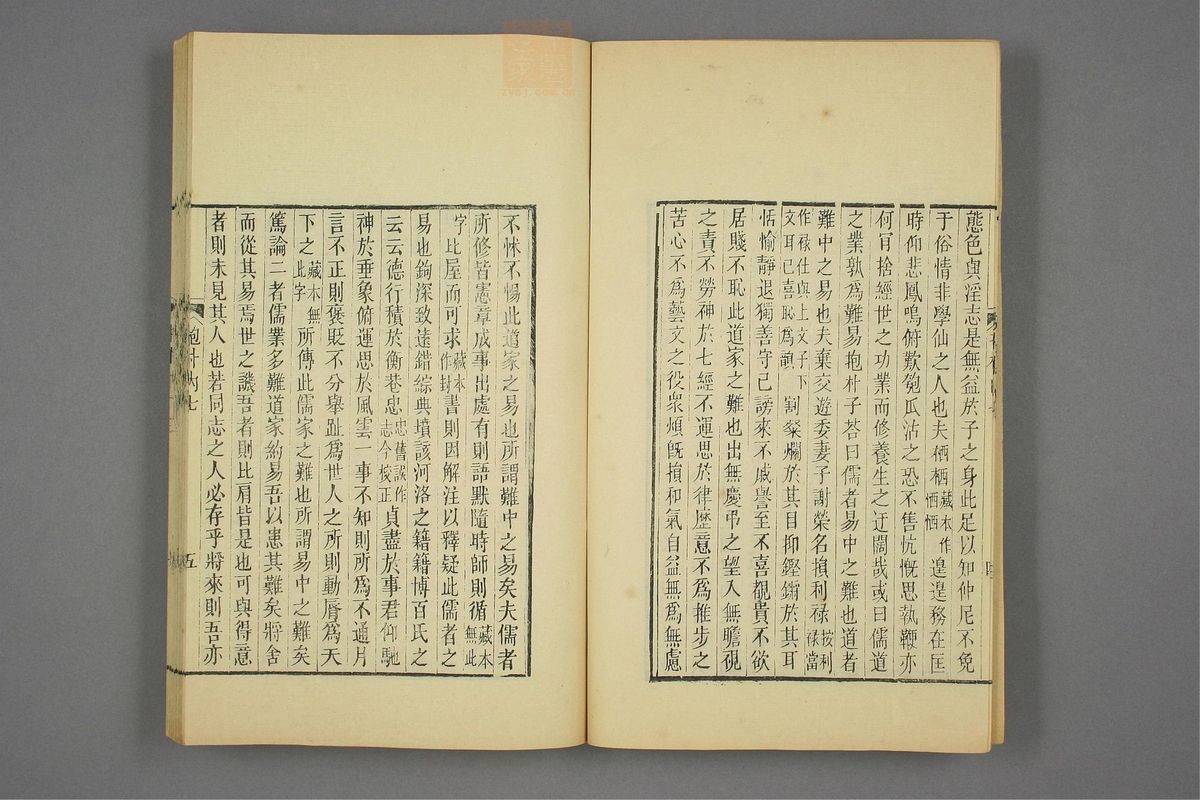 態色與淫志是無益於子之身此足以知仲尼不免
于俗情非學仙之人也夫栖栖藏本作恓恓遑遑務在匡
時仰悲鳳鳴俯歎匏瓜沽之恐不售忼慨思執鞭亦
何肎捨經世之功業而修養生之迂闊哉或曰儒道
之業孰爲難易抱朴子荅曰儒者易中之難也道者
難中之易也夫棄交遊委妻子謝榮名損利祿按利祿當
作祿仕與上文子下文耳己喜恥爲韻割粲爛於其目抑鏗鏘於其耳
恬愉靜退獨善守己謗來不戚譽至不喜覩貴不欲
居賤不恥此道家之難也出無慶弔之望入無瞻視
之責不勞神於七經不運思於律歷意不爲推步之
苦心不爲藝文之役衆煩旣損和氣自益無爲無慮
不怵不惕此道家之易也所謂難中之易矣夫儒者
所修皆憲章成事出處有則語默隨時師則循藏本無此
字比屋而可求藏本作封書則因解注以釋疑此儒者之
易也鉤深致遠錯綜典墳該河洛之籍籍博百氏之
云云德行積於衡巷忠忠舊誤作志今校正貞盡於事君仰馳
神於垂象俯運思於風雲一事不知則所爲不通片
言不正則褒貶不分舉趾爲世人之所則動脣爲天
下之藏本無此字所傳此儒家之難也所謂易中之難矣
篤論二者儒業多難道家約易吾以患其難矣將舍
而從其易焉世之譏吾者則比肩皆是也可與得意
者則未見其人也若同志之人必存乎將來則吾亦
抱朴內七
五